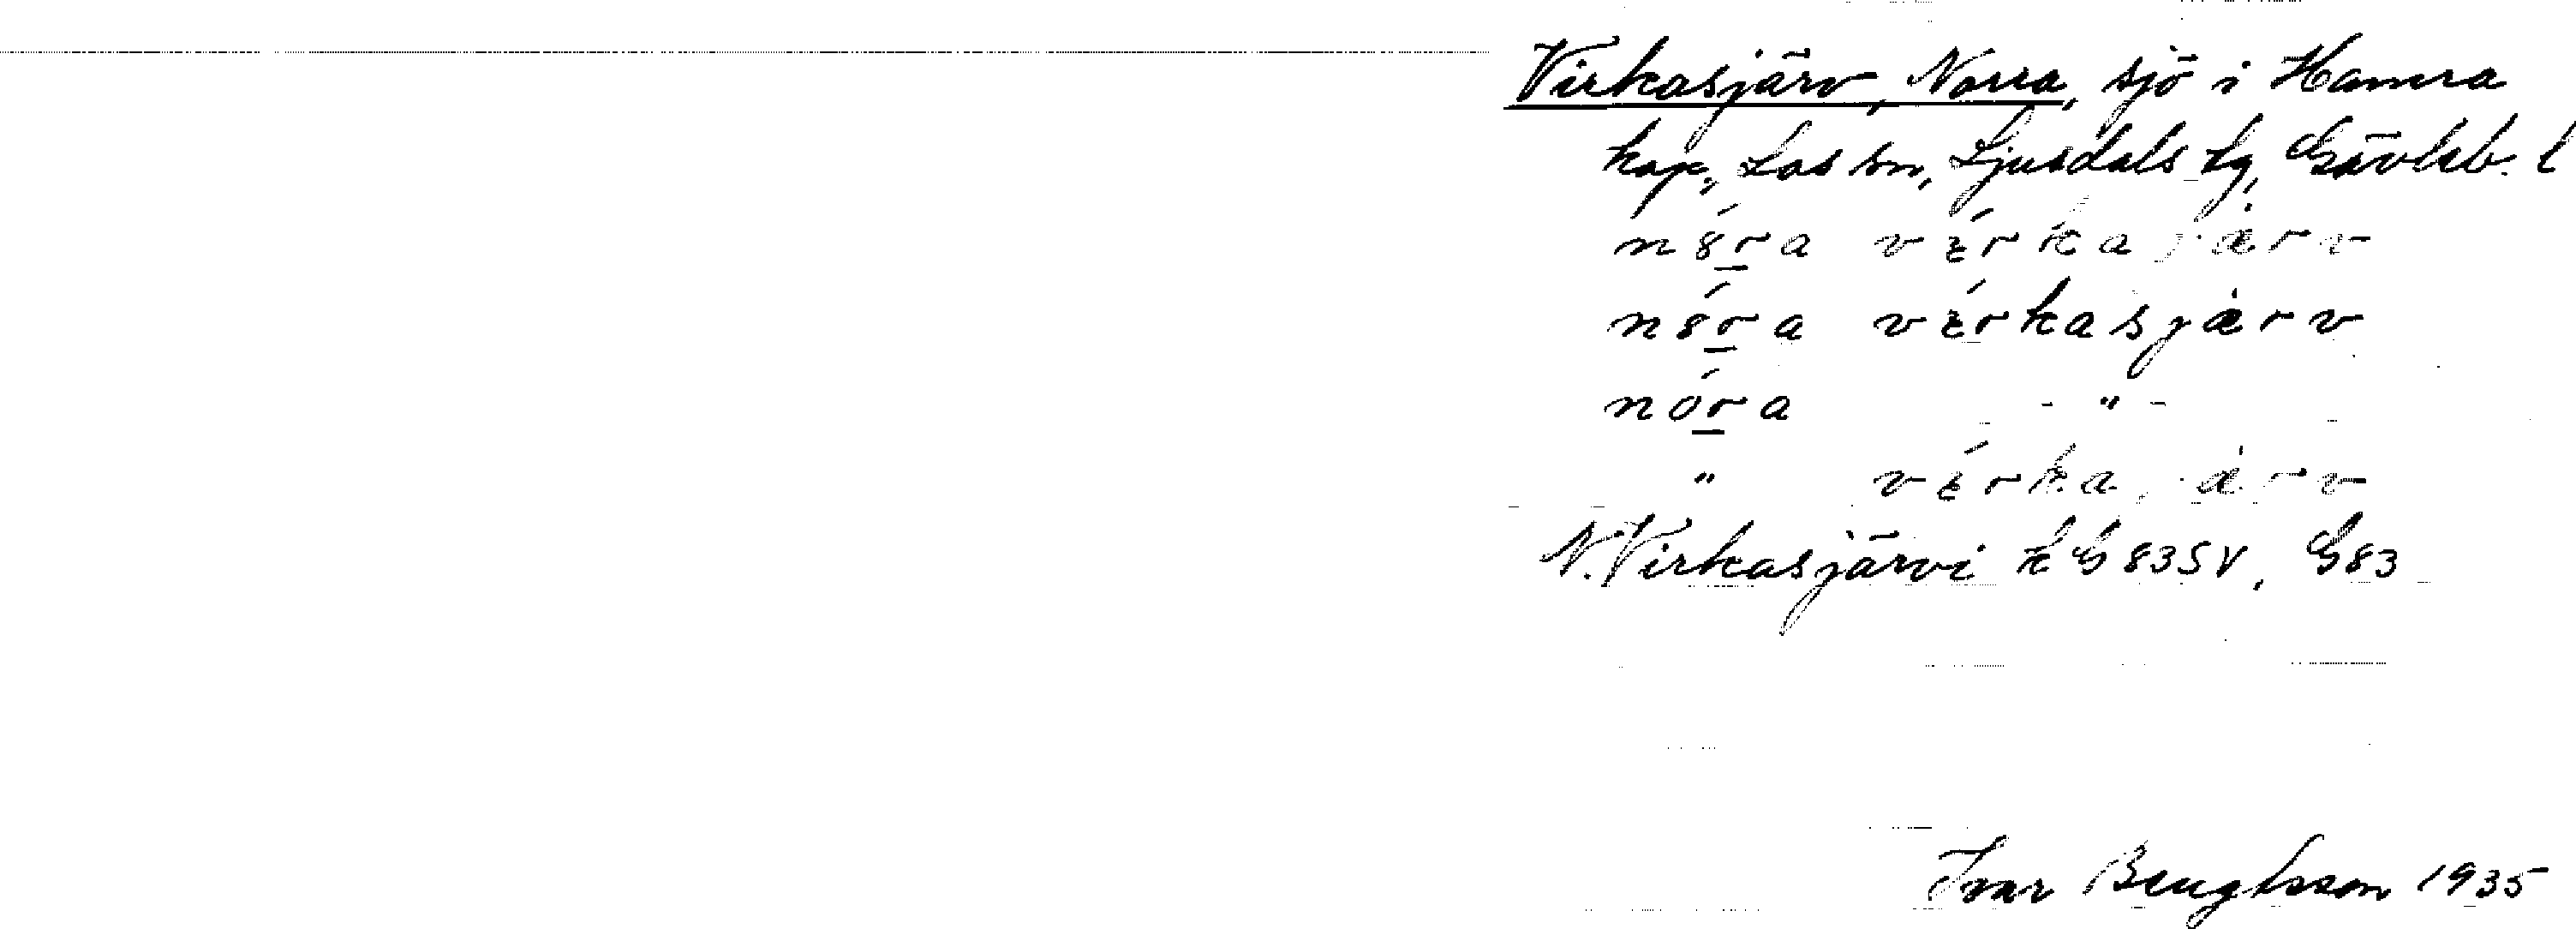 Virkasjärv, Norra, sjö i Hamra
kap., Los sn, Ljusdals tg, Gävleb. l
n8ra verkajärv
n8ra verkasjärv
nora - " -
" verkajärv
N. Virkasjärvi k G 83 SV, G 83
Ivar Bengtsson 1935